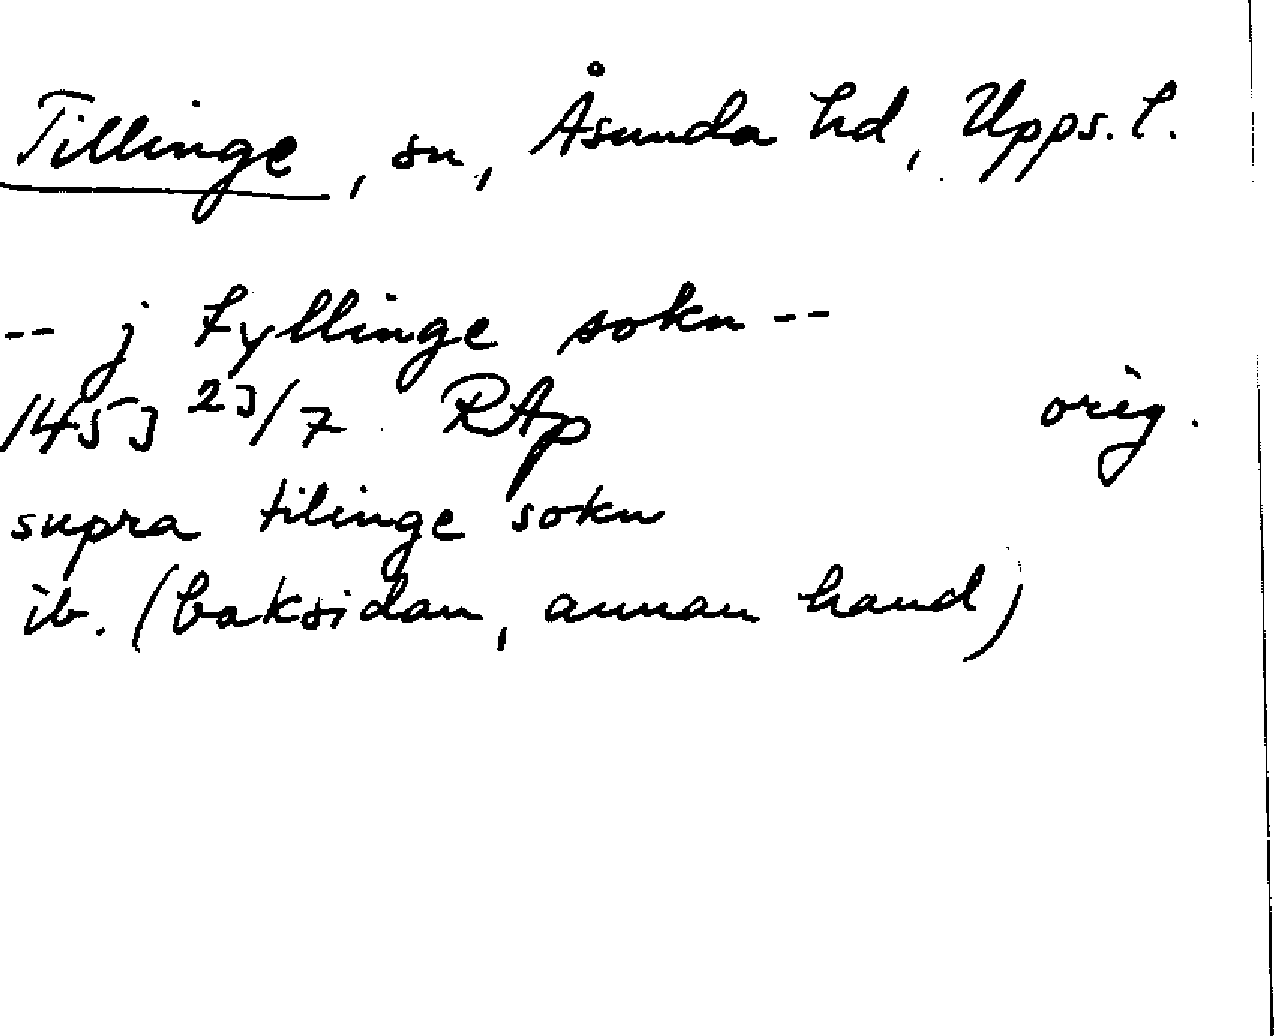 Tillinge, sn, Åsunda hd, Upps. l.
-- j tyllinge sokn --
1453 23/7 RAp orig.
supra tilinge sokn
ib. (baksidan, annan hand)